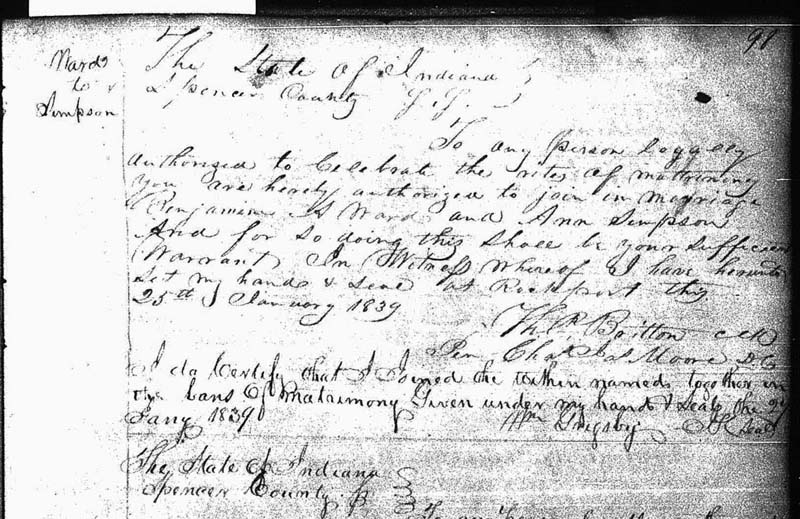 91
Ward
to
Simpson
The State of Indiana
Spencer County
To any person leggaly
authorized to Celebrate the rites of matrimony
you are hereby authorized to join in marriage
Benjamin Ward and Ann Simpson
And for so doing this Shall be your Sufficient
Warrant In Witness whereof I have hereunto
Set my hand & Seal at Rockport this
25th January 1839
Thos P Britton Clk
Moore D.C
I do Certify that I Joined the within named together in
the bans of matrimony Given under my hand & Seal the
Jany 1839 Wm Grigsby
The State of Indiana
Spencer County
To any person